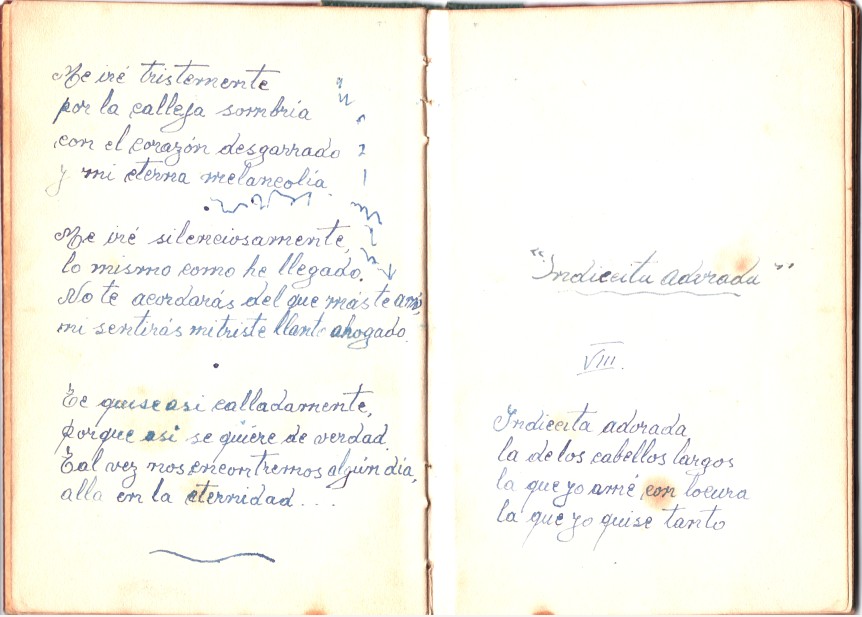 Me iré tristemente
por la calleja sombría
con el corazón desgarrado
y mi eterna melancolía.
Me iré silenciosamente,
lo mismo como he llegado.
No te acordarás del que más te amó,
ni sentirás mi triste llanto ahogado.
Te quise asi calladamente,
porque asi se quiere de verdad.
Tal vez nos encontremos algún día,
alla en la eternidad....
"Indiecita adorada"
VIII.
Indiecita adorada
la de los cabellos largos
la que yo amé con locura
la que yo quise tanto